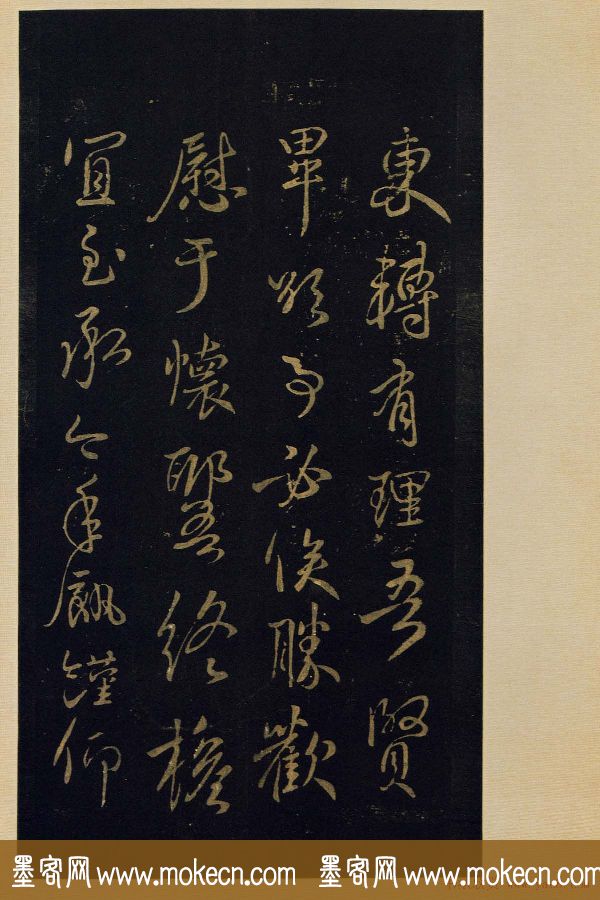 東轉有理吾賢
畢欲事必俟勝歡
慰于懷耶吾終權
宜至承今年飢饉仰
墨客网 www.mokecn.com 墨客网 www.mokecn.com